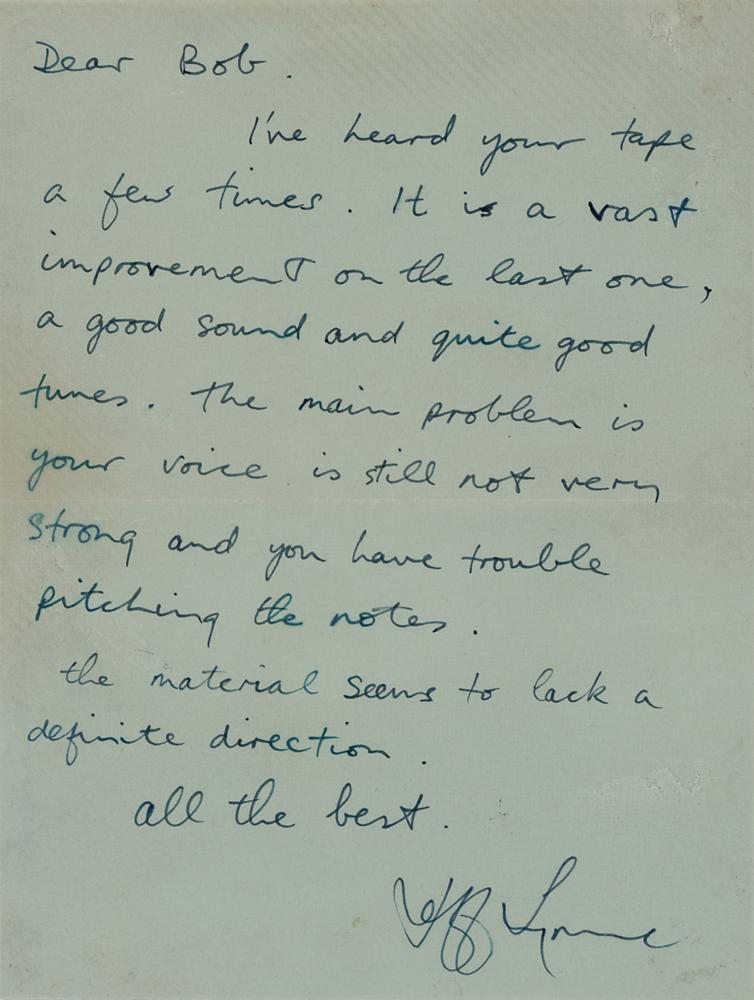 Dear Bob.
I've heard your tape
a few times. It is a vast
improvement on the last one,
a good sound and quite good
tunes. The main problem is
your voice is still not very
strong and you have trouble
pitching the notes.
the material seems to lack a
definite direction.
all the best.
Jeff Lynne